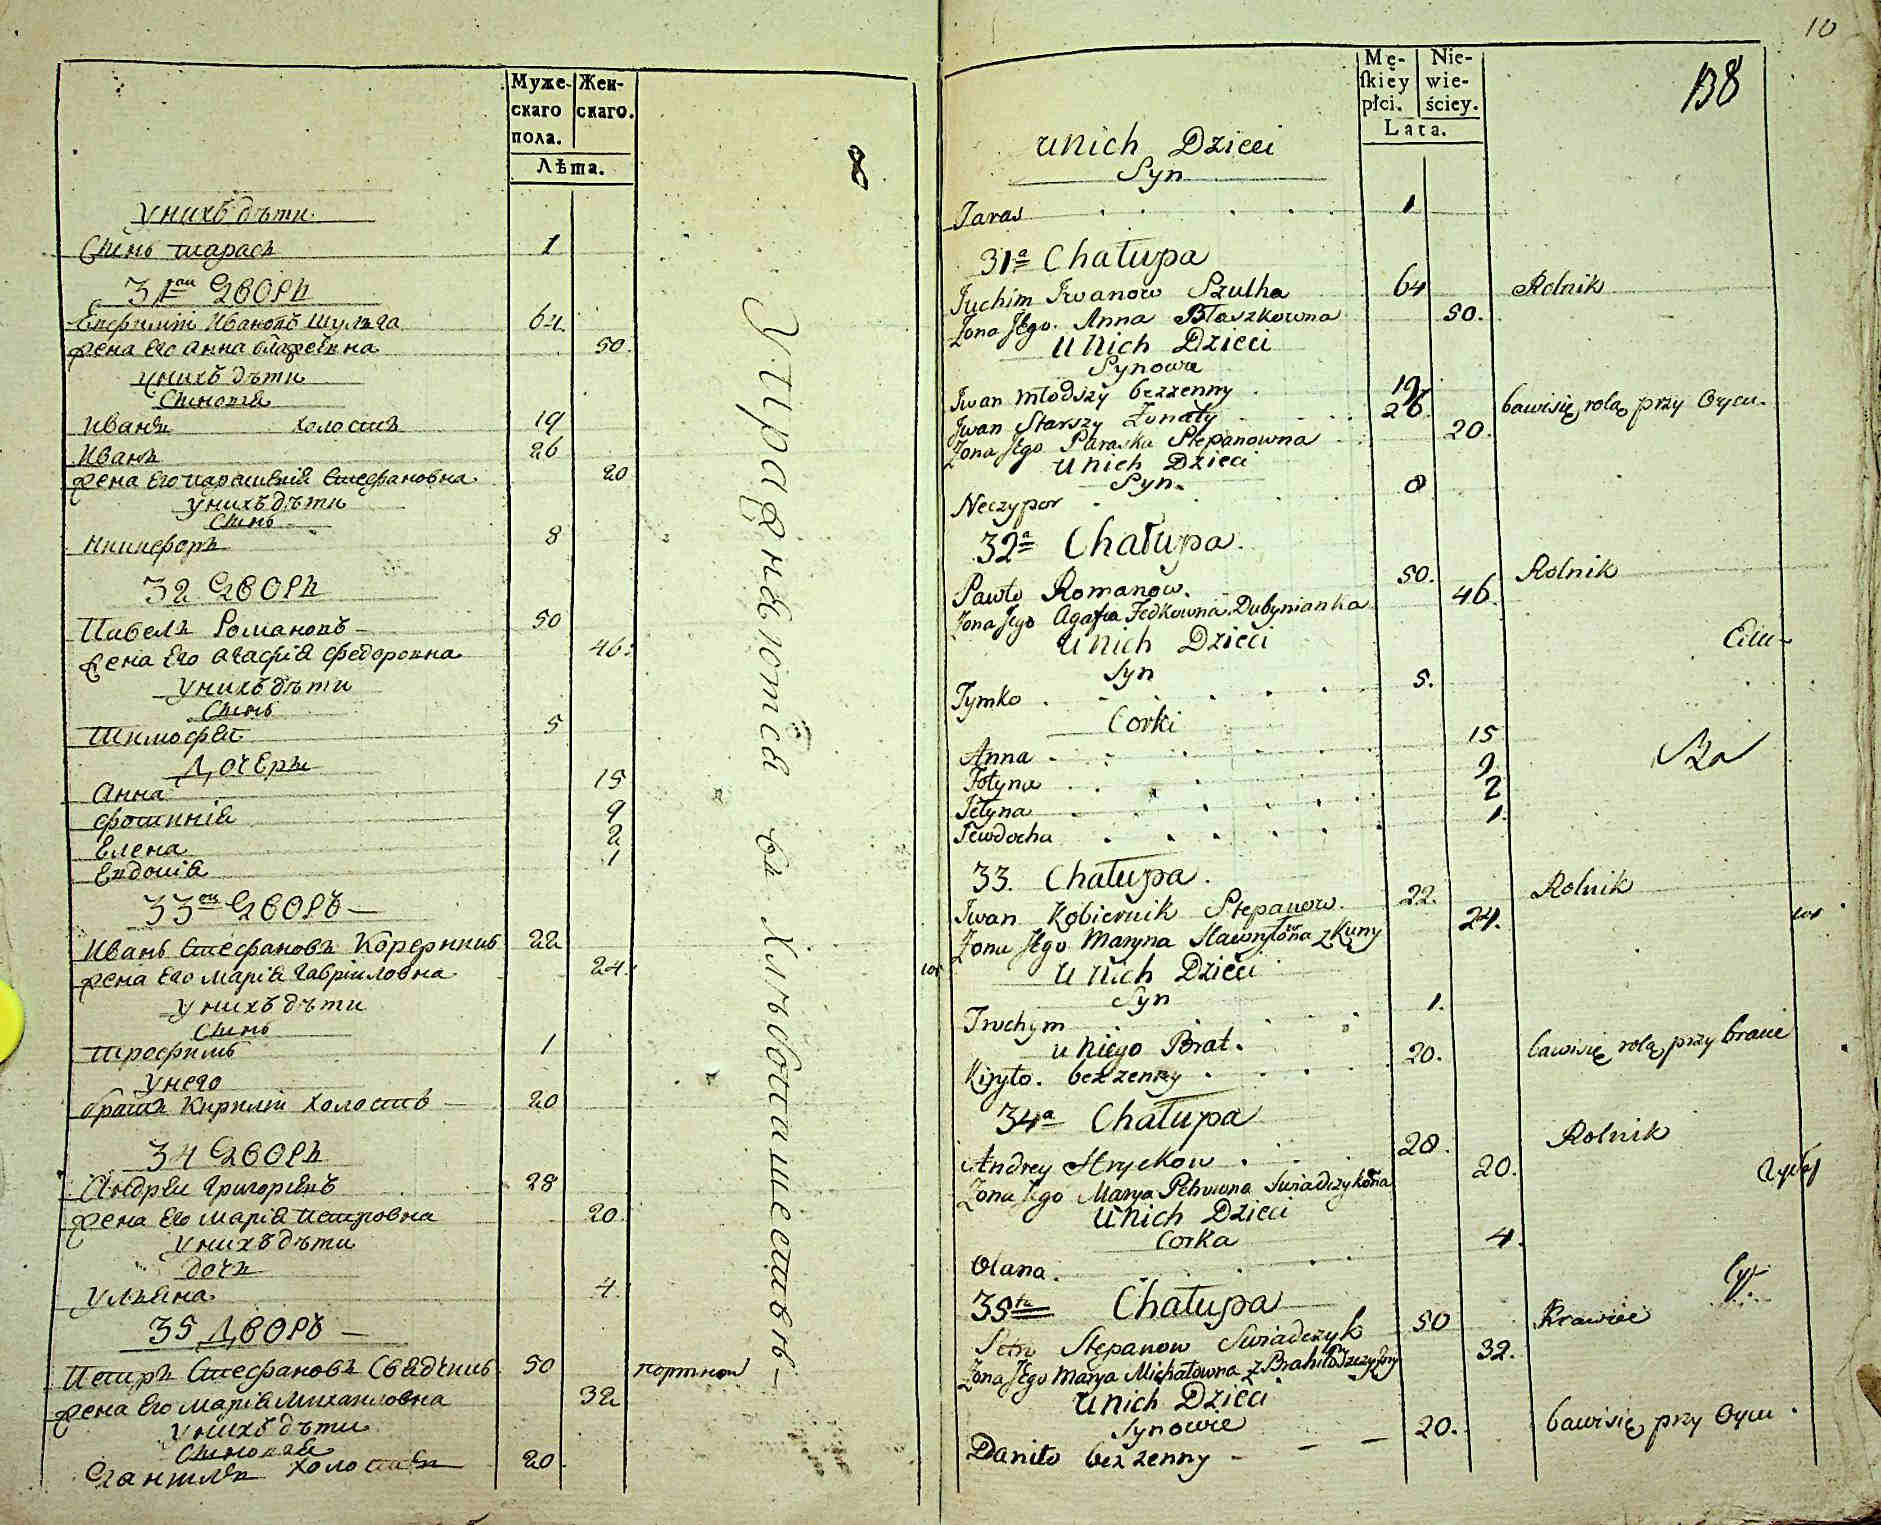 Муже-
скаго
пола.
Жен-
скаго.
Лѣта.
8
у нихъ дѣти
Сынъ тарасъ 1
31ой дворъ
Евфимій Ивановъ Шульга 64
жена Его Анна 50
у нихъ дѣти
Сыновья
Иванъ холостъ 19
Иванъ 26
жена Его параскевія Стефановна 20
у нихъ дѣти
Сынъ
Никифоръ 8
32 дворъ
Павелъ Романовъ 50
жена Его агафія федоровна 46
у нихъ дѣти
Сынъ
тимофей 5
дочери
Анна 15
фотинія 9
Елена 2
Евдокія 1
33ей дворъ
Иванъ Стефановъ 22
жена Его Марія Гавріиловна 24
у нихъ дѣти
Сынъ
трофимъ 1
у него
братъ Кирилъ холостъ 20
34 дворъ
Андрей Григорьевъ 28
жена Его Марія петровна 20
у нихъ дѣти
дочь
ульяна 4
35 дворъ
Петръ Стефановъ Свядчикъ 50 портной
жена Его Марія Михайловна 32
у нихъ дѣти
Сыновья
даниилъ холостъ 20
Упражняются въ хлѣбопашествѣ
10
138
Mę-
skiey
płci.
Nie-
wie-
ściey.
Lata.
U nich Dzieci
Syn
Taras 1
31a Chałupa
Juchim Iwanow Szulha 64 Rolnik
Żona Jego Anna Błaszkowna 50.
U nich Dzieci
Synowie
Iwan młodszy bezżenny 19
Iwan Starszy Żonaty 26. bawi się rolą przy Oycu.
Żona Jego Paraska Stepanowna 20.
U nich Dzieci
Syn.
Neczypor 8
32a Chałupa.
Pawło Romanow. 50. Rolnik
Żona Jego Agafia Fedkowna Dubynianka 46.
U nich Dzieci
Syn
Tymko 5.
Corki
Anna 15
Fotyna 9.
Jełyna 2
Jewdocha 1.
33. Chałupa.
Iwan Kobiernik Stepanow. 22. Rolnik
Żona Jego Maryna z Kuny 24.
U nich Dzieci
Syn
Trochym 1.
u niego Brat.
Kiryło. bezżenny 20. bawi się rolą przy bracie
34a Chałupa
Andrey Hryckow 28. Rolnik
Żona Jego Marya Petrowna 20.
U nich Dzieci
Corka
Olana. 4.
35ta Chałupa
Petro Stepanow Swiadczyk 50 Krawiec
Żona Jego Marya Michałowna 32.
U nich Dzieci
Synowie
Daniło bezżenny 20. bawi się przy Oycu.